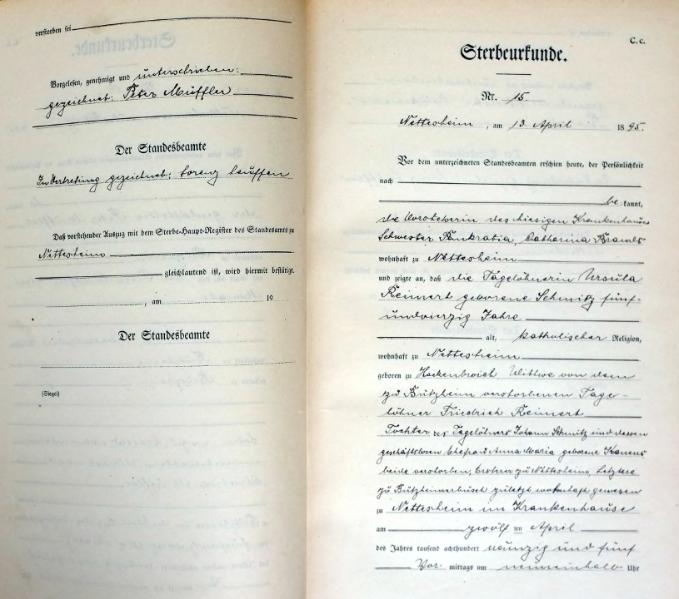 verstorben sei
Vorgelesen, genehmigt und unterschrieben:
gezeichnet: Peter Müffler
Der Standesbeamte
In Vertretung gezeichnet: Lorenz Lauffen
Daß vorstehender Auszug mit dem Sterbe-Haupt-Register des Standesamts zu
Nettesheim
gleichlautend ist, wird hiermit bestätigt.
, am 19
Der Standesbeamte
(Siegel)
C. c.
Sterbeurkunde.
Nr. 15.
Nettesheim, am 13. April 1895.
Vor dem unterzeichneten Standesbeamten erschien heute, der Persönlichkeit
nach
be kannt,
die Vorsteherin des hiesigen Krankenhauses
Schwester Pankratia, Catharina
wohnhaft zu Nettesheim
und zeigte an, daß die Tagelöhnerin Ursula
Reimert geborene Schmitz fünf-
undvierzig Jahre
alt, katholischer Religion,
wohnhaft zu Nettesheim
geboren zu Hackenbroich Wittwe von dem
zu Bützheim verstorbenen Tage-
löhner Friedrich Reimert
Tochter des Tagelöhners Johann Schmitz und dessen
geschäftslosen Ehefrau Anna Maria geborene
beide verstorben, Ersterer zu Nettesheim, Letztere
zu Bützheimerbusch zuletzt wohnhaft gewesen
zu Nettesheim im Krankenhause
am zwölften April
des Jahres tausend achthundert neunzig und fünf
Vor mittags um neuneinhalb Uhr